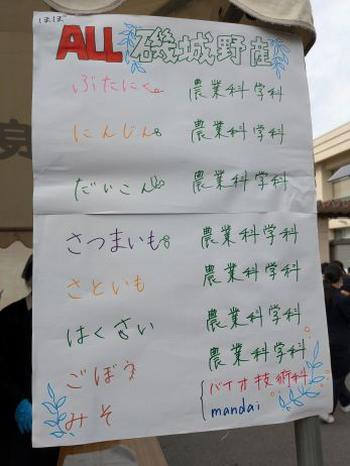 ほぼ
ALL 磯城野産
ぶたにく 農業科学科
にんじん 農業科学科
だいこん 農業科学科
さつまいも 農業科学科
さといも 農業科学科
はくさい 農業科学科
ごぼう 農業科学科
みそ バイオ技術科
mandai